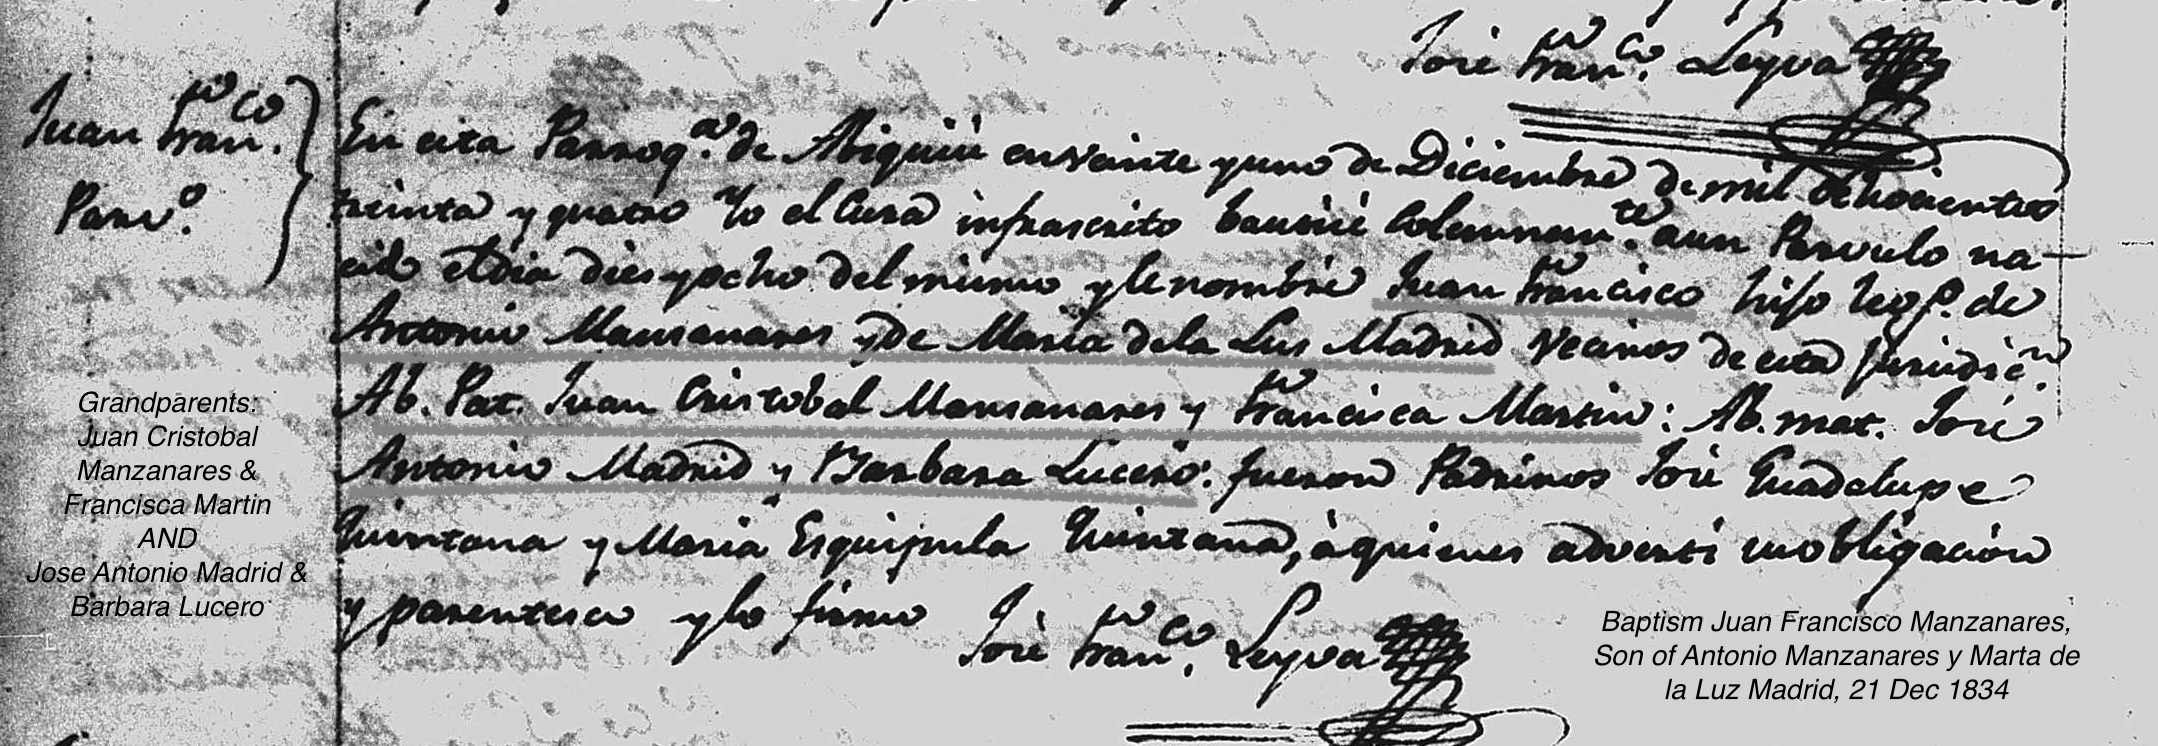 José Fran.co Leyva
Juan Fran.co
Parv.o
En esta Parroq.a de Abiquiú en veinte y uno de Diciembre de mil ochocientos
treinta y quatro Yo el Cura infrascrito bautisé solemnem.te a un Parvulo na-
cido el dia dies y ocho del mismo y le nombré Juan Francisco hijo leg.o de
Antonio Mansanares y de Maria de la Lus Madrid vecinos de esta jurisdic.n
Ab. Pat. Juan Cristobal Mansanares y Francisca Martin: Ab. mat. José
Antonio Madrid y Barbara Lucero: fueron Padrinos José Guadalupe
Quintana y Maria Esquipula Quintana, à quienes advertí su obligacion
y parentesco y lo firmo José Fran.co Leyva
Grandparents:
Juan Cristobal
Manzanares &
Francisca Martin
AND
Jose Antonio Madrid &
Barbara Lucero
Baptism Juan Francisco Manzanares,
Son of Antonio Manzanares y Marta de
la Luz Madrid, 21 Dec 1834